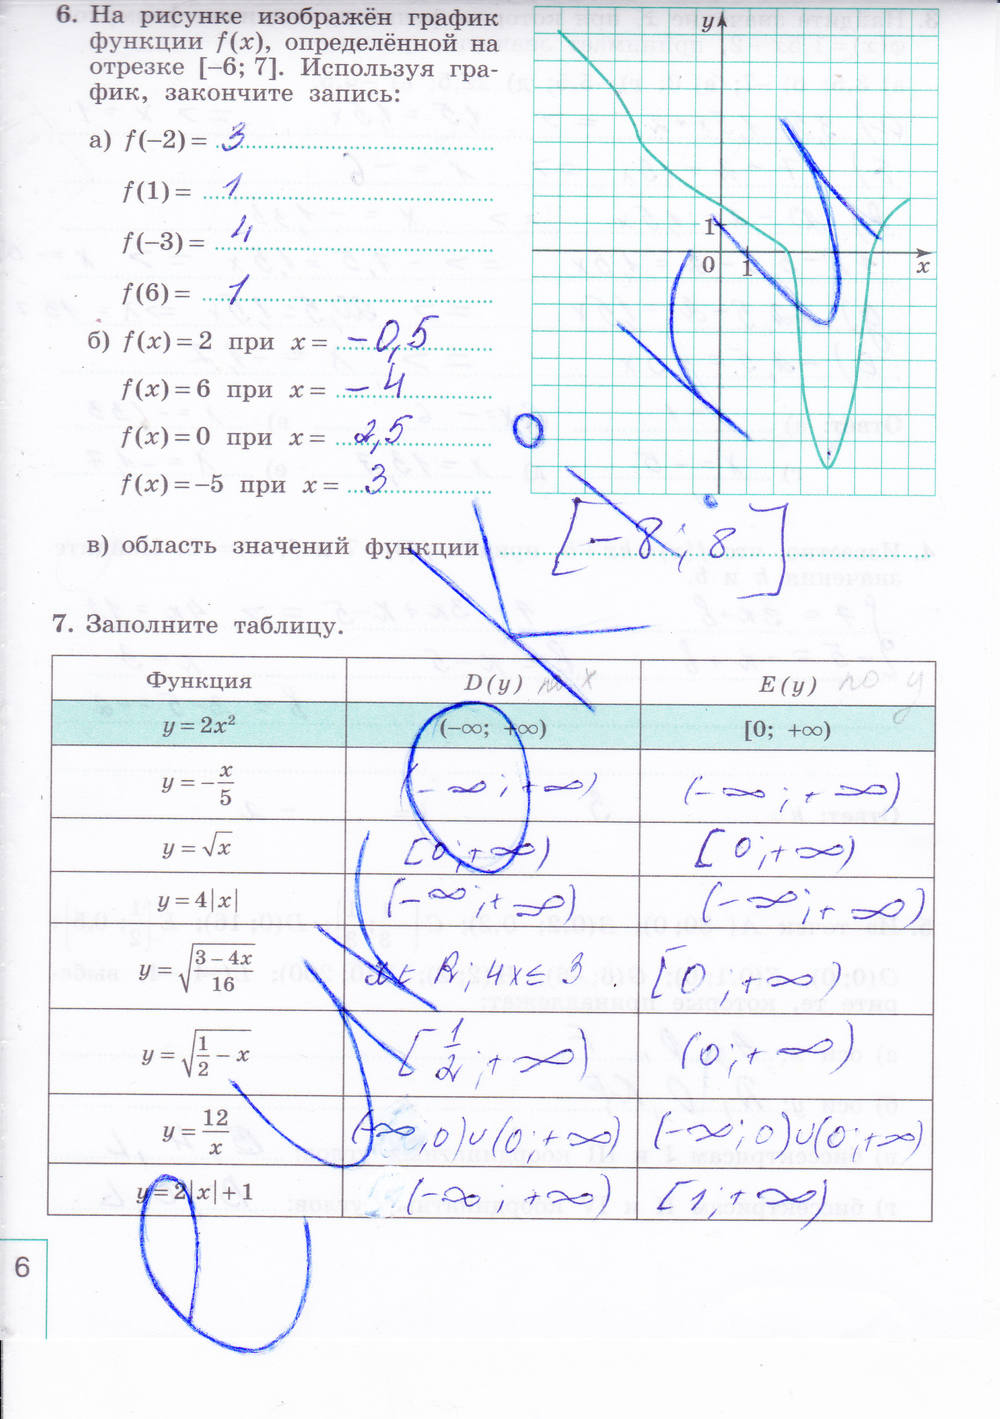 6. На рисунке изображён график
функции f(x), определённой на
отрезке [–6; 7]. Используя гра-
фик, закончите запись:
а) f(–2) = 3
f(1) = 1
f(–3) = 4
f(6) = 1
б) f(x) = 2 при x = –0,5
f(x) = 6 при x = –4
f(x) = 0 при x = 2,5
f(x) = –5 при x = 3
y
1
0 1 x
в) область значений функции [–8; 8]
7. Заполните таблицу.
Функция D(y) по x E(y) по y
y = 2x² (–∞; +∞) [0; +∞)
y = –x/5 (–∞; +∞) (–∞; +∞)
y = √x [0; +∞) [0; +∞)
y = 4|x| (–∞; +∞) (–∞; +∞)
y = √((3 – 4x)/16) x ∈ R; 4x ≤ 3 [0; +∞)
y = √(1/2 – x) [1/2; +∞) (0; +∞)
y = 12/x (–∞; 0)∪(0; +∞) (–∞; 0)∪(0; +∞)
y = 2|x| + 1 (–∞; +∞) [1; +∞)
6